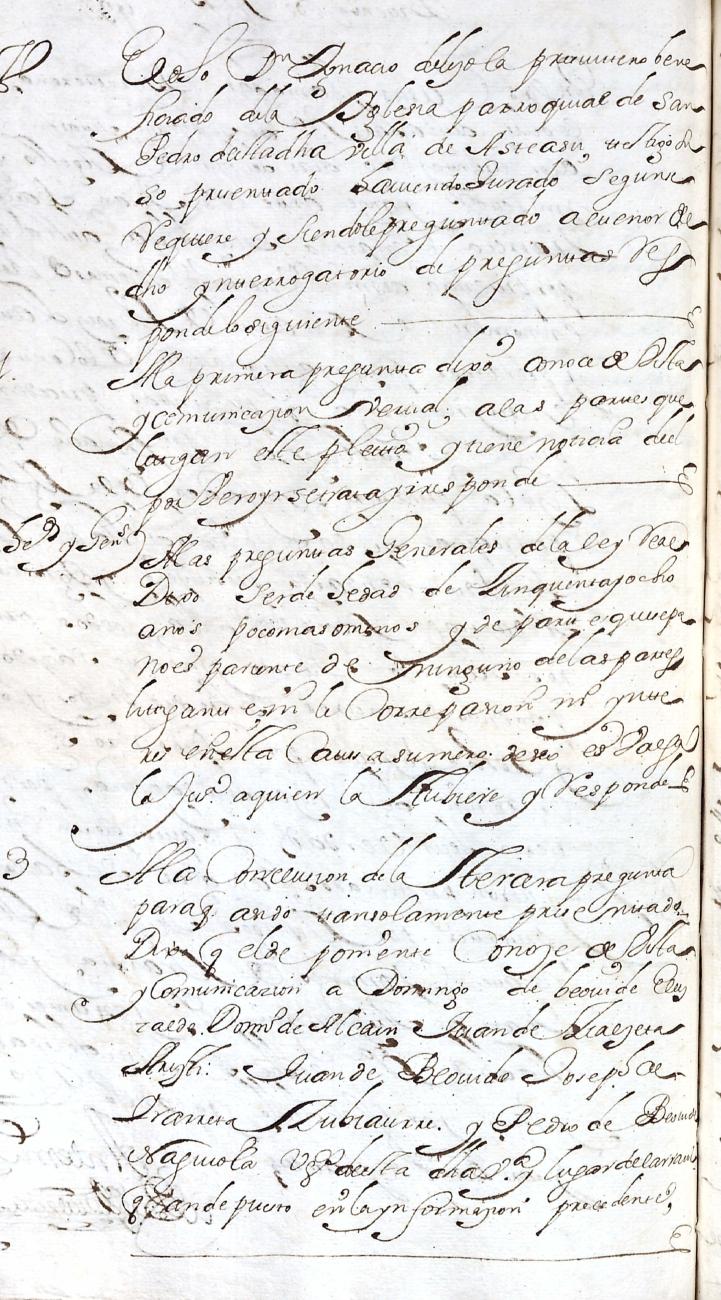 Dn Ignacio de presvitero bene
ficiado de la Yglesia parroquial de San
Pedro de la dha Villa de Asteasu testigo
so presentado haviendo Jurado segun se
requiere y siendole preguntado a el tenor de
dho ynterrogatorio de preguntas Res
ponde lo siguiente
1 A la primera pregunta dixo conoce de Vista
y comunicazion a las partes que
litigan este pleito y tiene noticia del
por se trata y responde
hedad y Gens A las preguntas Generales de la ley Real
Dixo ser de hedad de Zinquenta y ocho
años poco mas o menos y de parte
no es pariente de ninguno de las partes
litigantes ni le Corresponden ni ynte
res en esta Causa su mero deseo es Valga
la Justa a quien la tubiere y Responde
3 A la Conclusion de la tercera pregunta
para q. a sido tan solamente presentado
Dixo q el deponiente Conoze de Vista
y Comunicazion a Domingo de beovide
Domo de Alcain Juan de
Juan de Beovide Joseph de
Yrarreta Zubiaurre y Pedro de Beovide
Naguiola Vos de esta dha Va y lugar de Larraul
q. an depuesto en la ynformazion precedente